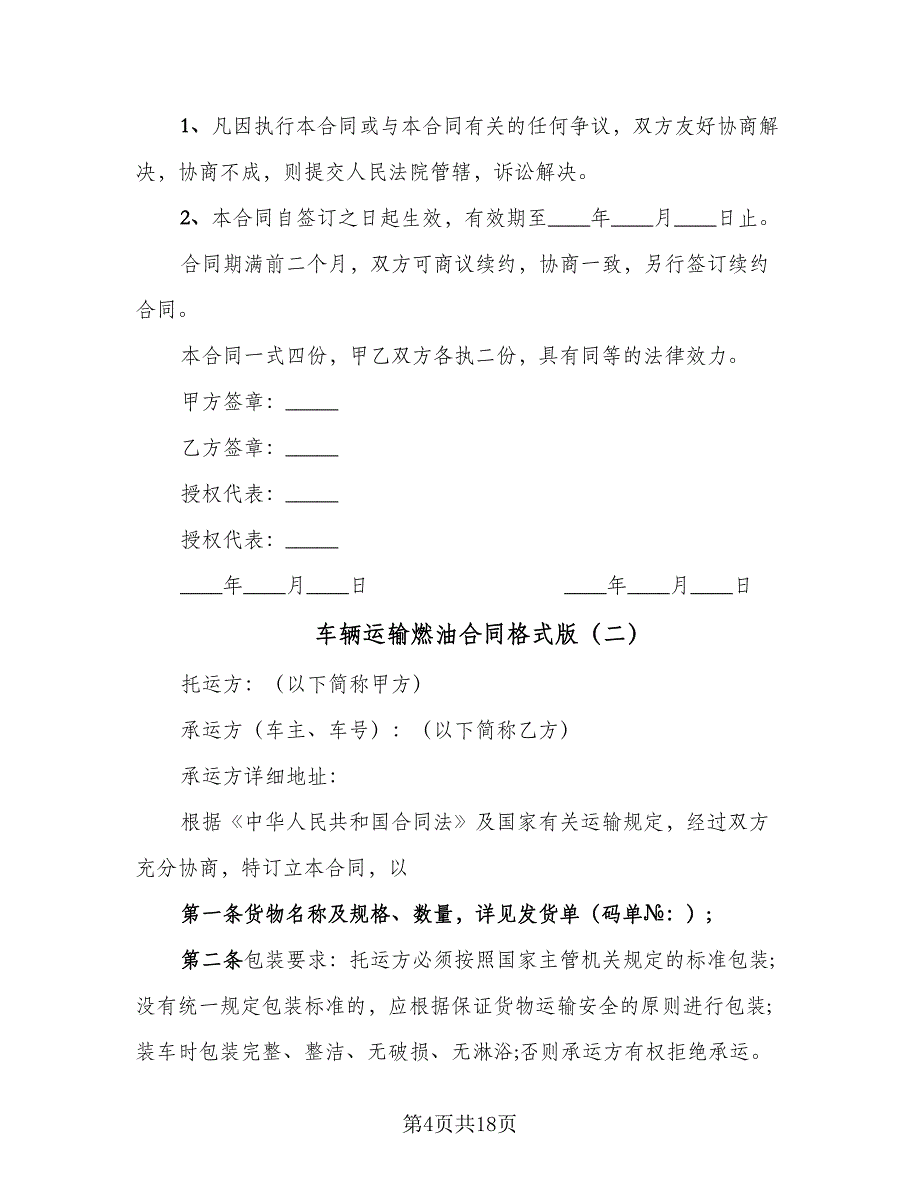 1、凡因执行本合同或与本合同有关的任何争议，双方友好协商解
决，协商不成，则提交人民法院管辖，诉讼解决。
2、本合同自签订之日起生效，有效期至____年____月____日止。
合同期满前二个月，双方可商议续约，协商一致，另行签订续约
合同。
本合同一式四份，甲乙双方各执二份，具有同等的法律效力。
甲方签章：_____
乙方签章：_____
授权代表：_____
授权代表：_____
____年____月____日 ____年____月____日
车辆运输燃油合同格式版（二）
托运方：（以下简称甲方）
承运方（车主、车号）：（以下简称乙方）
承运方详细地址：
根据《中华人民共和国合同法》及国家有关运输规定，经过双方
充分协商，特订立本合同，以
第一条货物名称及规格、数量，详见发货单（码单№：）；
第二条包装要求：托运方必须按照国家主管机关规定的标准包装;
没有统一规定包装标准的，应根据保证货物运输安全的原则进行包装;
装车时包装完整、整洁、无破损、无淋浴;否则承运方有权拒绝承运。
第4页共18页